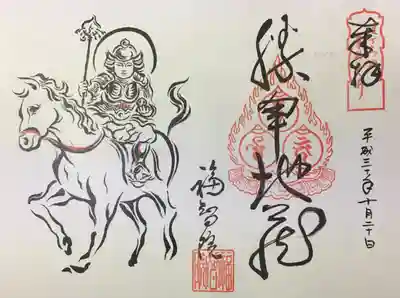 奉拝
平成三十年十月二十日
勝軍地蔵
福智院